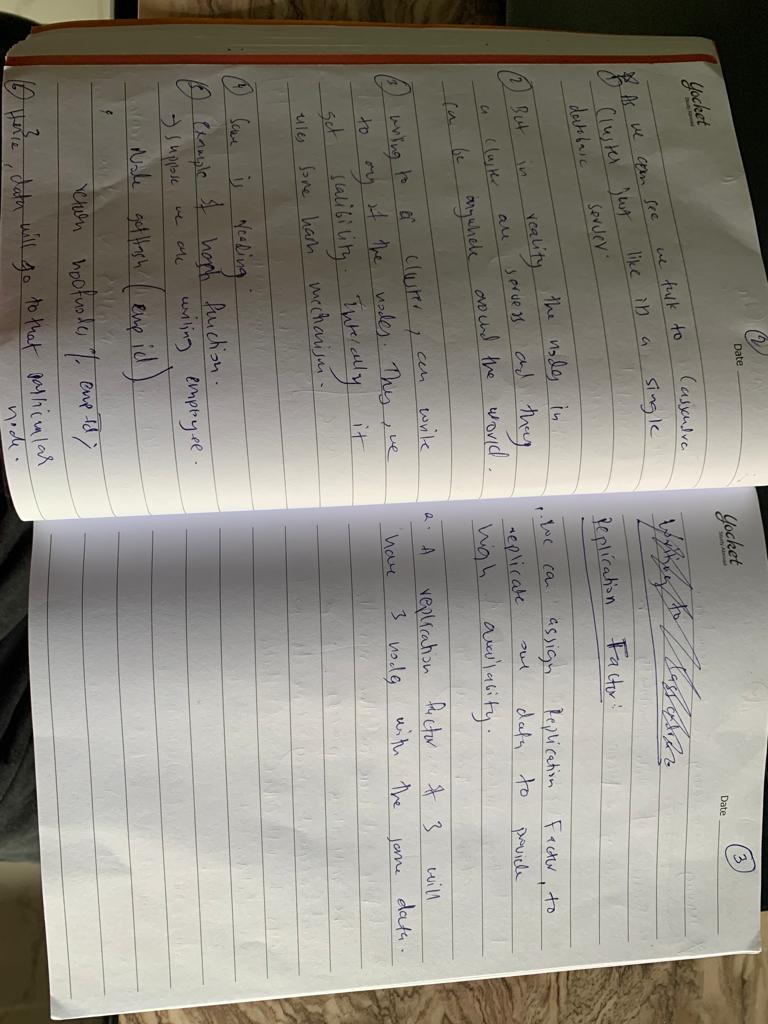 2
Date
yocket
Study Abroad
1 As we can see we talk to Cassandra
Cluster just like its a single
database server.
2 But in reality the nodes in
a cluster are servers and they
can be anywhere around the world.
3 writing to a cluster, can write
to any of the nodes. Thus, we
get scalibility. Interally it
uses some hash mechanism.
4 Same is reading.
5 Example of hash function.
→ Suppose we are writing employee.
Node getHash (emp id)
{
return noofnodes % empId;
}
6 Hence, data will go to that particular
node.
yocket
Study Abroad
Date
3
Writing to Cassandra
Replication Factor:
1. We can assign Replication Factor, to
replicate our data to provide
high availabity.
2. A replication factor of 3 will
have 3 nodes with the same data.